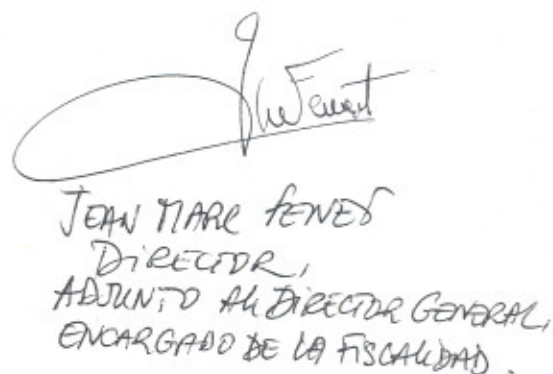 JEAN MARC FENET
DIRECTOR,
ADJUNTO AL DIRECTOR GENERAL,
ENCARGADO DE LA FISCALIDAD.